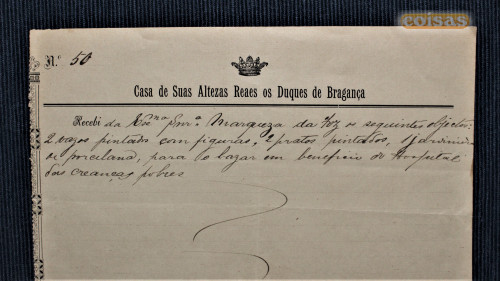 coisas
N.º 50
Casa de Suas Altezas Reaes os Duques de Bragança
Recebi da Exma Snra Marqueza da Foz os seguintes objectos:
2 vazos pintados com figuras, 2 pratos pintados, jardineira
de porcelana, para o bazar em beneficio do Hospital
das creanças pobres